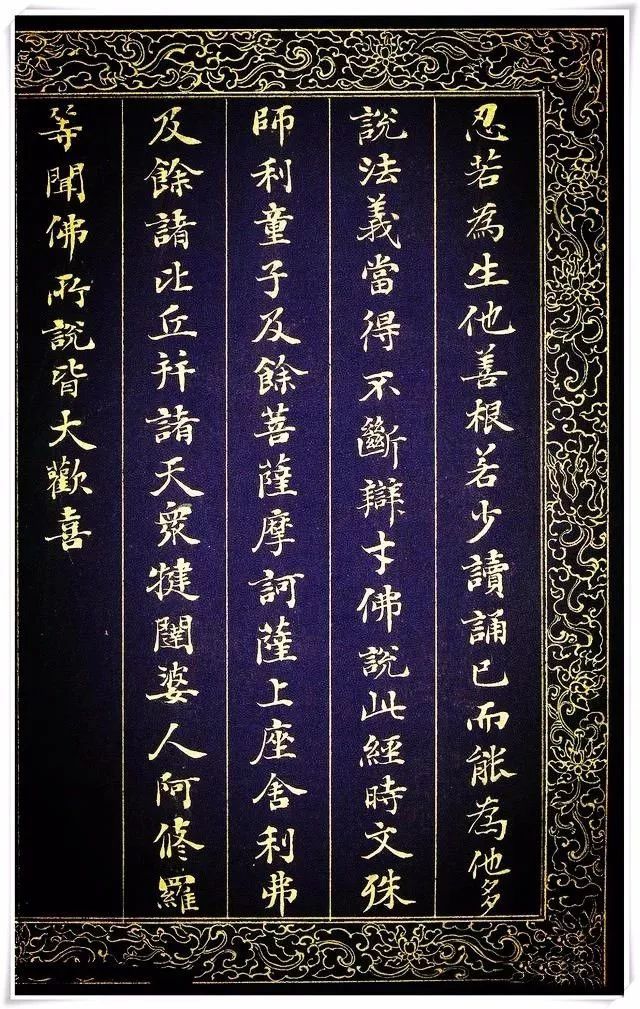 忍若為生他善根若少讀誦已而能為他多
說法義當得不斷辯才佛說此經時文殊
師利童子及餘菩薩摩訶薩上座舍利弗
及餘諸比丘并諸天眾揵闥婆人阿修羅
等聞佛所說皆大歡喜